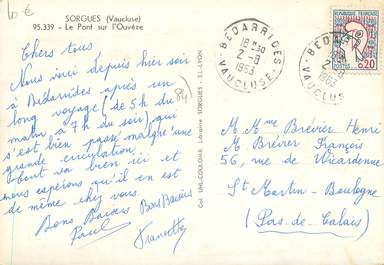 10 €
SORGUES (Vaucluse)
95.339 - Le Pont sur l'Ouvèze
Chers tous
Nous voici depuis hier soir
à Bédarrides après un
long voyage (de 5h du
matin à 7h du soir) qui
s'est bien passé malgré une
grande circulation.
Tout va bien ici et
nous espérons qu'il en est
de même chez vous.
Bons Baisers
Paul
Bons Baisers
(84)
Col. UHL-COULOME, Librairie SORGUES - S.L. LYON
BÉDARRIDES
18H30
2-8
1963
VAUCLUSE
POSTES
0,20
M. Mme Brévier Henri
M. Brévier François
56, rue de Wicardenne
St Martin-Boulogne
(Pas-de-Calais)